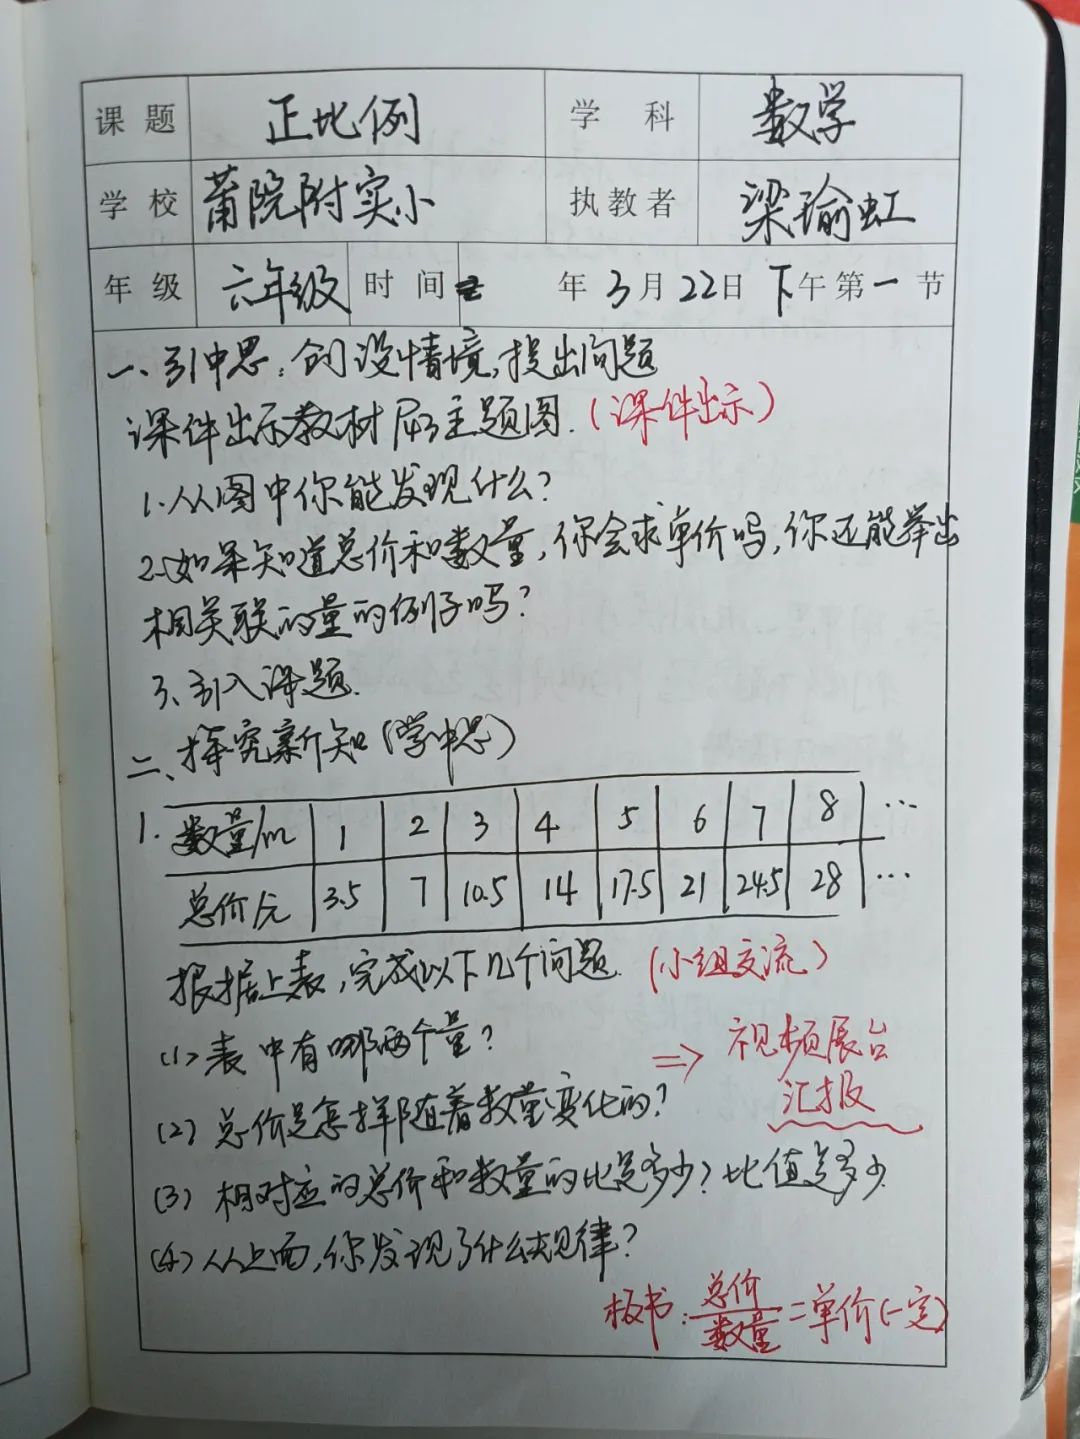 课题 正比例 学科 数学
学校 莆院附实小 执教者 梁瑜虹
年级 六年级 时间 年3月22日 下午第一节
一、引中思:创设情境,提出问题
课件出示教材P43主题图.(课件出示)
1.从图中你能发现什么?
2.如果知道总价和数量,你会求单价吗,你还能举出
相关联的量的例子吗?
3、引入课题.
二、探究新知(学中思)
1. 数量/m 1 2 3 4 5 6 7 8 …
总价/元 3.5 7 10.5 14 17.5 21 24.5 28 …
根据上表,完成以下几个问题.(小组交流)
(1)表中有哪两个量? ⇒ 视频展台
汇报
(2)总价是怎样随着数量变化的?
(3)相对应的总价和数量的比是多少?比值是多少.
(4)从上面,你发现了什么规律?
板书:总价/数量=单价(一定)